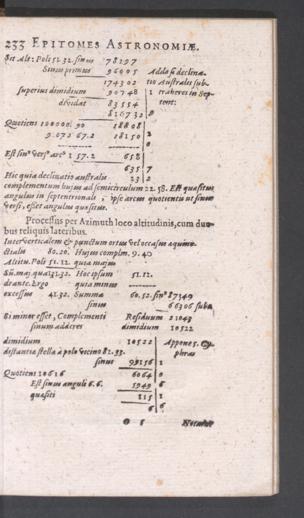 233 EPITOMES ASTRONOMIÆ.
Set Alt: Poli 51.32. sinus 78297
Sinus primus 96005 Adda si declina-
174302 tio Australis sub-
superius dimidium 90748 1 traheres in Sep-
dividat 83554 tent:
816732 8
Quotiens 100000. 90 18808
9.073 67.2 18150 2
Est sin⁹ vers⁹ arc⁹ 1 57.2 658 0
635 7
Hic quia declinatio australis 23 2
complementum hujus ad semicirculum 22.58. Est quæsitus
angulus in septentrionali, ipse arcus quotientis ut sinus
versi, esset angulus quæsitus.
Processus per Azimuth loco altitudinis, cum duo-
bus reliquis lateribus.
Inter verticalem & punctum ortus vel occasus æquino-
ctialis 80.20. Hujus complm. 9.40
Altitu. Poli 51.12. quia majus
Hoc ipsum 51.12.
drante. Ergo quia minus
excessus 41.32. Summa 60.52. sin⁹ 87349
sinus 66306 subt.
Si minor esset, Complementi Residuum 21043
sinum adderes dimidium 10522
dimidium 10522 Appone 5. Cy-
distantia stellæ à polo vicino 82.33. phras
sinus 99156 1
Quotiens 10616 6064 0
Est sinus anguli 6.6. 5949 6
quæsiti 115 1
6 6